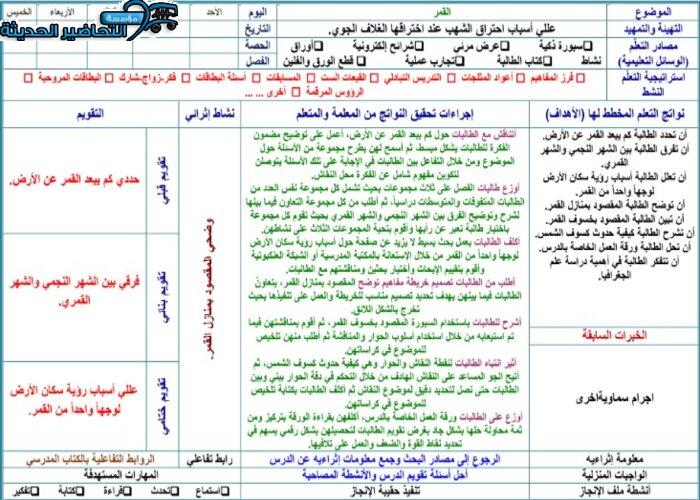 الموضوع
القمر
اليوم
الأحد
الأربعاء
الخميس
مؤسسة
التحاضير الحديثة
التهيئة والتمهيد
عللي أسباب احتراق الشهب عند اختراقها الغلاف الجوي.
التاريخ
مصادر التعلم
(الوسائل التعليمية)
سبورة ذكية
عرض مرئي
شرائح إلكترونية
أوراق
الحصة
نشاط
كتاب الطالبة
تجارب عملية
قطع الورق والفلين
الفصل
استراتيجية التعلم
النشط
فرز المفاهيم
أعواد المثلجات
التدريس التبادلي
القبعات الست
المسابقات
أسئلة البطاقات
فكر-زواج-شارك
البطاقات المروحية
الرؤوس المرقمة
أخرى ... ...
نواتج التعلم المخطط لها (الأهداف)
إجراءات تحقيق النواتج من المعلمة والمتعلم
نشاط إثرائي
التقويم
أن تحدد الطالبة كم يبعد القمر عن الأرض.
أن تفرق الطالبة بين الشهر النجمي والشهر
القمري.
أن تعلل الطالبة أسباب رؤية سكان الأرض
لوجهاً واحداً من القمر.
أن توضح الطالبة المقصود بمنازل القمر.
أن تبين الطالبة المقصود بخسوف القمر.
أن تشرح الطالبة كيفية حدوث كسوف الشمس.
أن تحل الطالبة ورقة العمل الخاصة بالدرس.
أن تتفكر الطالبة في أهمية دراسة علم
الجغرافيا.
الخبرات السابقة
اجرام سماويةاخرى
أتناقش مع الطالبات حول كم يبعد القمر عن الأرض، أعمل على توضيح مضمون
الفكرة للطالبات بشكل مبسط، ثم أسمح لهن بطرح مجموعة من الأسئلة حول
الموضوع ومن خلال التفاعل بين الطالبات في الإجابة على تلك الأسئلة يتوصلن
لتكوين مفهوم شامل عن الفكرة محل النقاش.
أوزع طالبات الفصل على ثلاث مجموعات بحيث تشمل كل مجموعة نفس العدد من
الطالبات المتفوقات والمتوسطات دراسياً، ثم أطلب من كل مجموعة التعاون فيما بينها
لشرح وتوضيح الفرق بين الشهر النجمي والشهر القمري بحيث تقوم كل مجموعة
باختيار طالبة تعبر عن رأيها وأقوم بنحية المجموعات الثلاث على نشاطهن.
أكلف الطالبات بعمل بحث بسيط لا يزيد عن صفحة حول أسباب رؤية سكان الأرض
لوجهاً واحداً من القمر من خلال الإستعانة بالمكتبة المدرسية أو الشبكة العنكبوتية
وأقوم بتقييم الإبحاث وأختار بحثين ومناقشتهم مع الطالبات.
أطلب من الطالبات تصميم خريطة مفاهيم توضح المقصود بمنازل القمر، يتعاون
الطالبات فيما بينهن بهدف تحديد تصميم مناسب للخريطة والعمل على تنفيذها بحيث
تخرج بالشكل اللائق.
أشرح للطالبات باستخدام السبورة المقصود بخسوف القمر، ثم أقوم بمناقشتهن فيما
تم استيعابه من خلال استخدام أسلوب الحوار والمناقشة ثم أطلب منهن تلخيص
للموضوع في كراساتهن.
أثير انتباه الطالبات لنقطة النقاش والحوار وهي كيفية حدوث كسوف الشمس، ثم
أتيح الجو المساعد على النقاش الهادف من خلال التحكم في دفة الحوار بيني وبين
الطالبات حتى نصل لتحديد دقيق لموضوع النقاش ثم أكلف الطالبات بكتابة تلخيص
للموضوع في كراساتهن.
أوزع على الطالبات ورقة العمل الخاصة بالدرس، أكلفهن بقراءة الورقة بتركيز ومن
ثمة محاولة حلها بشكل جاد بغرض تقويم الطالبات لتحصيلهن بشكل رقمي يسهم في
تحديد نقاط القوة والضعف والعمل على تلافيها.
وضحي المقصود بمنازل القمر.
تقويم قبلي
حددي كم يبعد القمر عن الأرض.
تقويم بنائي
فرقي بين الشهر النجمي والشهر
القمري.
تقويم ختامي
عللي أسباب رؤية سكان الأرض
لوجهاً واحداً من القمر.
معلومة إثرائيه
الرجوع إلى مصادر البحث وجمع معلومات إثرائيه عن الدرس
رابط تفاعلي
الروابط التفاعلية بالكتاب المدرسي
الواجبات المنزلية
أحل أسئلة تقويم الدرس والأنشطة المصاحبة
المهارات المستهدفة
أنشطة ملف الإنجاز
تنفيذ حقيبة الإنجاز
استماع
تحدث
قراءة
كتابة
تفكير